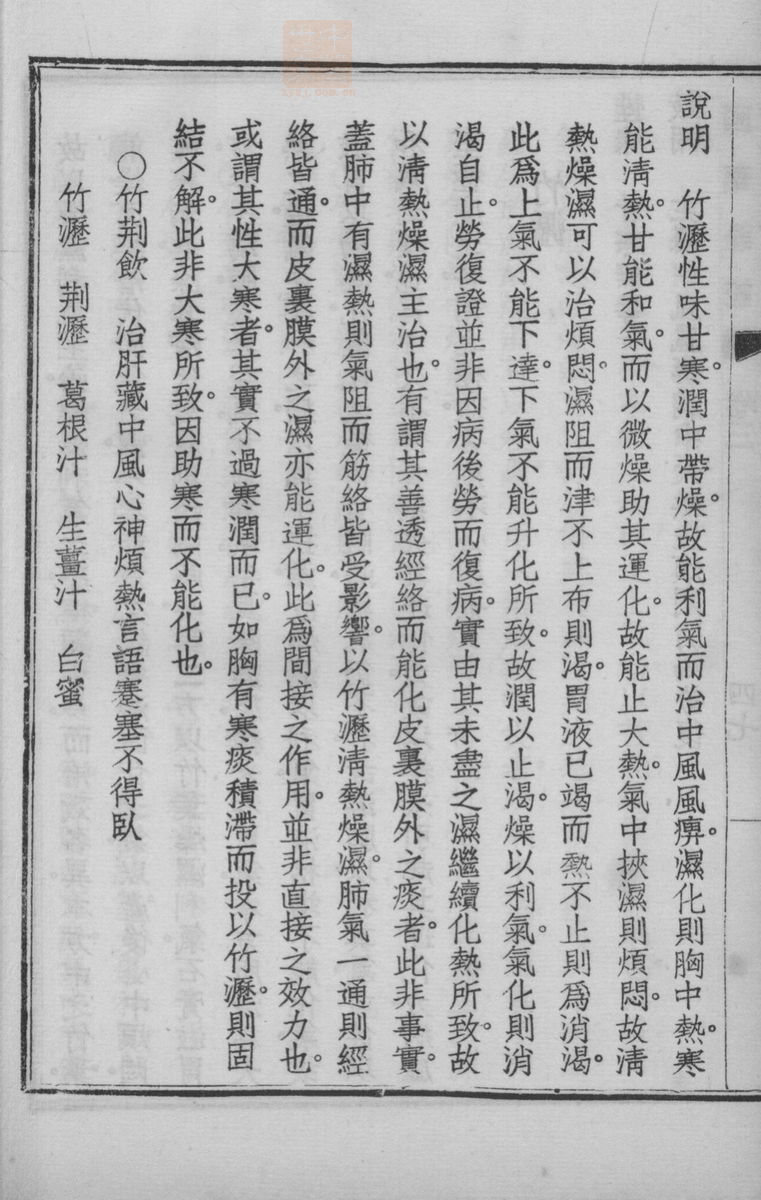 說明　竹瀝性味甘寒。潤中帶燥。故能利氣而治中風風痹。濕化則胸中熱。寒
能清熱。甘能和氣。而以微燥助其運化。故能止大熱。氣中挾濕則煩悶。故清
熱燥濕可以治煩悶。濕阻而津不上布則渴。胃液已竭而熱不止則爲消渴。
此爲上氣不能下達。下氣不能升化所致。故潤以止渴。燥以利氣。氣化則消
渴自止。勞復證並非因病後勞而復病。實由其未盡之濕繼續化熱所致。故
以淸熱燥濕主治也。有謂其善透經絡而能化皮裏膜外之痰者。此非事實。
蓋肺中有濕熱則氣阻而筋絡皆受影響。以竹瀝淸熱燥濕。肺氣一通則經
絡皆通。而皮裏膜外之濕亦能運化。此爲間接之作用。並非直接之效力也。
或謂其性大寒者。其實不過寒潤而已。如胸有寒痰積滯而投以竹瀝。則固
結不解。此非大寒所致。因助寒而不能化也。
○竹荆飲　治肝藏中風心神煩熱言語蹇塞不得臥
竹瀝　荆瀝　葛根汁　生薑汁　白蜜